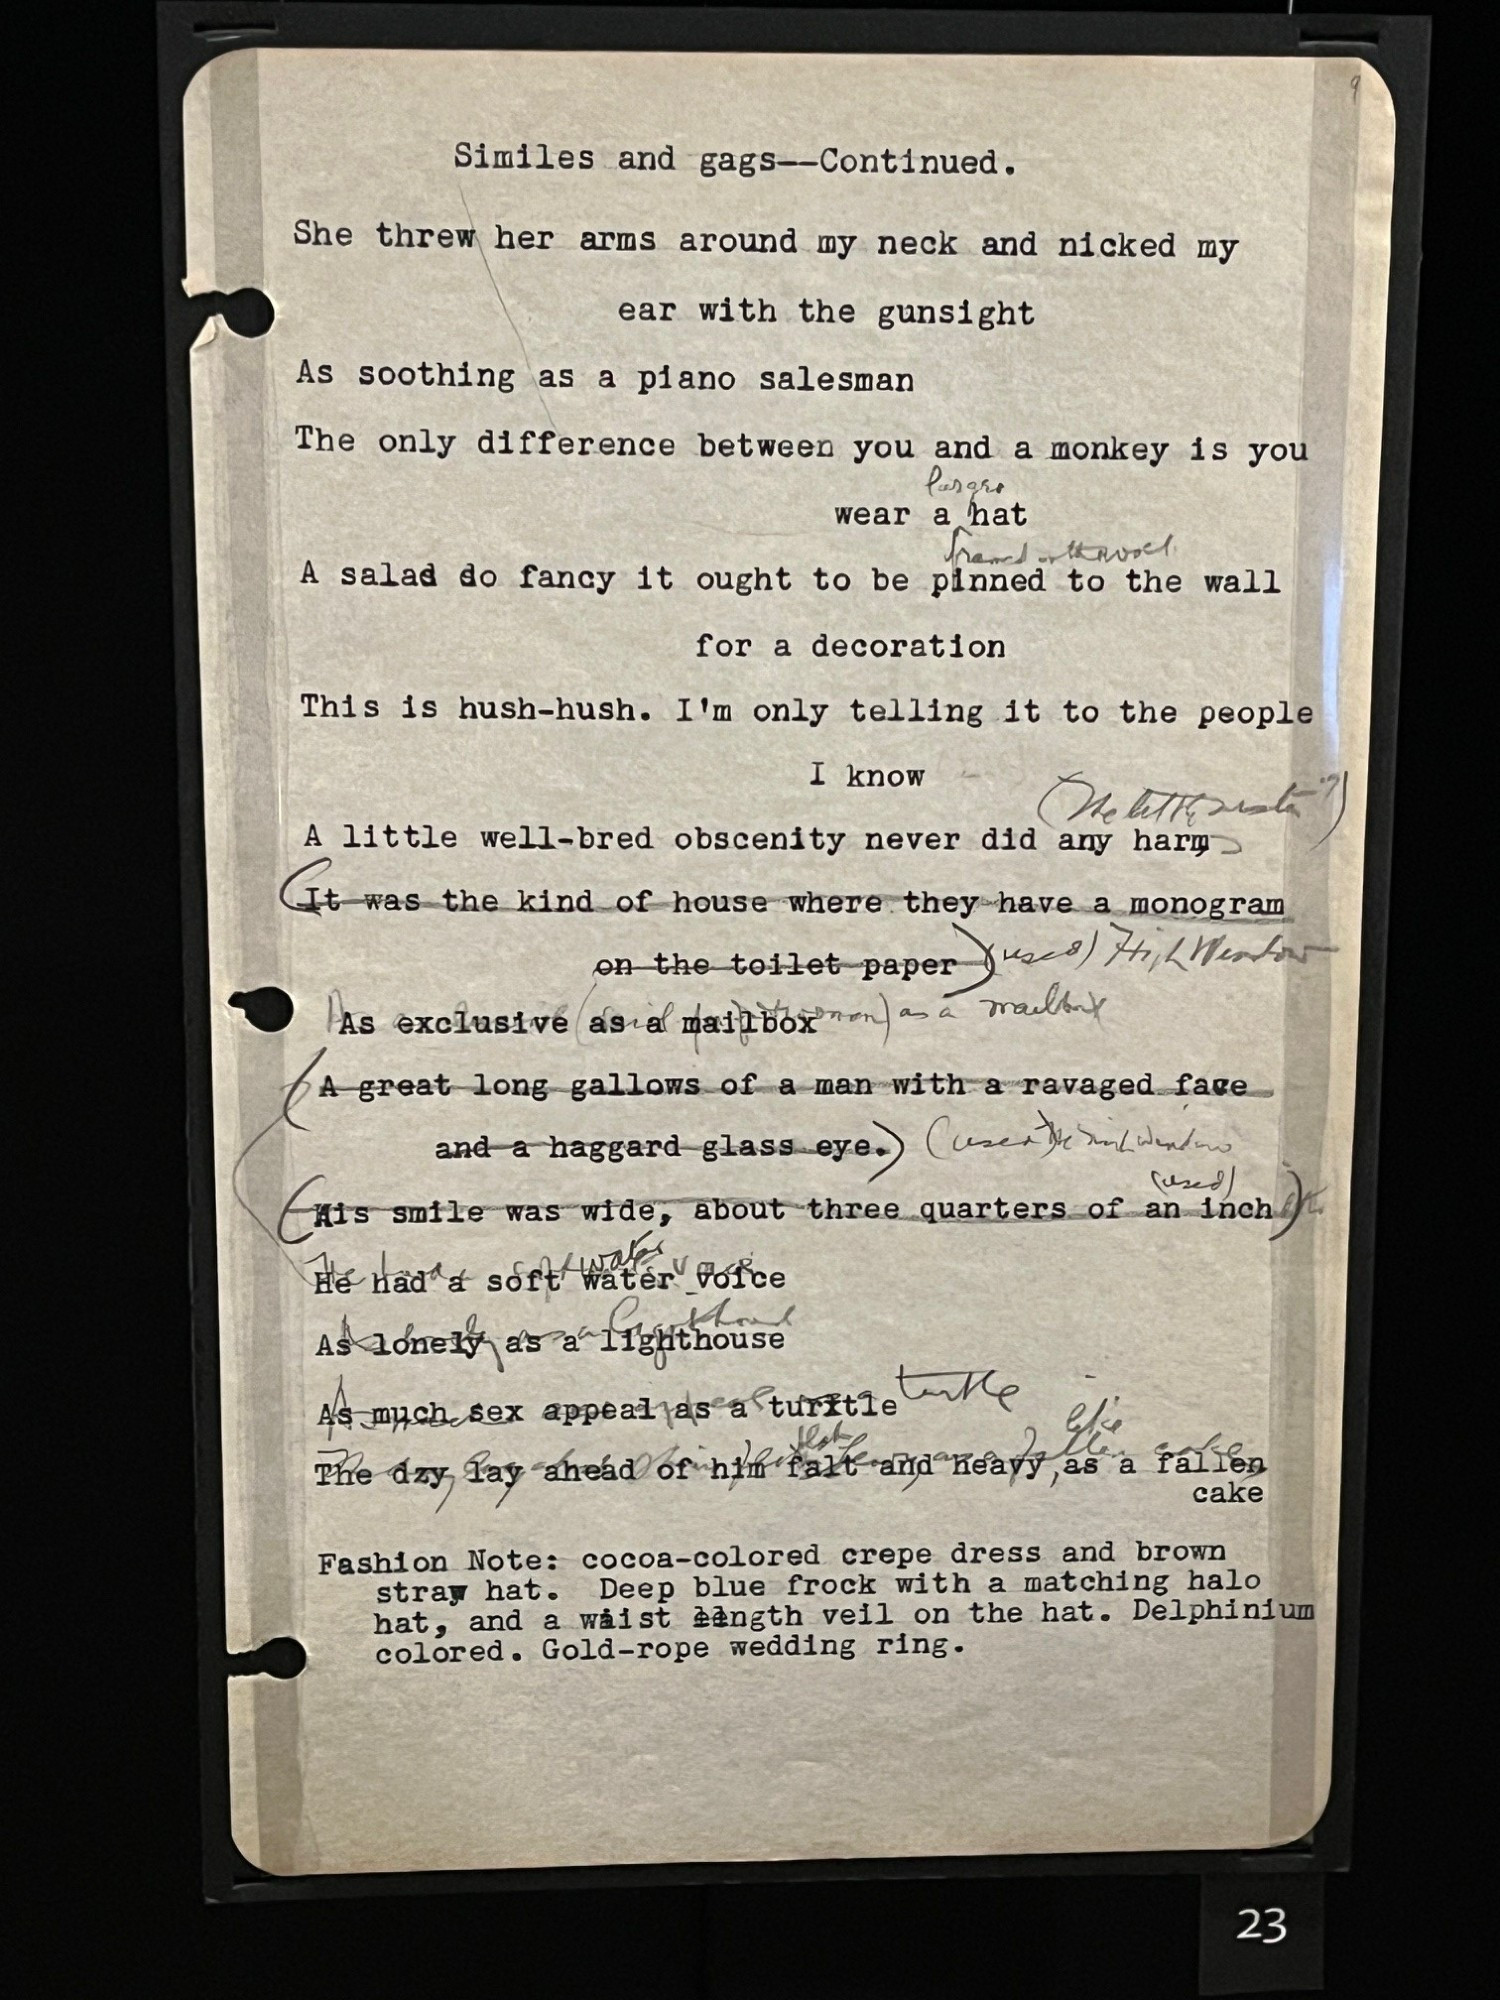 9
Similes and gags--Continued.
She threw her arms around my neck and nicked my
ear with the gunsight
As soothing as a piano salesman
The only difference between you and a monkey is you
larger
wear a hat
framed on the wall
A salad so fancy it ought to be pinned to the wall
for a decoration
This is hush-hush. I'm only telling it to the people
I know
(The Little Sister?)
A little well-bred obscenity never did any harm
(It was the kind of house where they have a monogram
on the toilet paper) (used) High Window
As exclusive as a mailbox as a mailbox
(A great long gallows of a man with a ravaged face
and a haggard glass eye.) (used) The High Window
(used)
(His smile was wide, about three quarters of an inch)
water
He had a soft water voice
As lonely as a lighthouse
As much sex appeal as a turxtle turtle
flat like
The dzy lay ahead of him falt and heavy, as a fallen
cake
Fashion Note: cocoa-colored crepe dress and brown
straw hat. Deep blue frock with a matching halo
hat, and a waist length veil on the hat. Delphinium
colored. Gold-rope wedding ring.
23